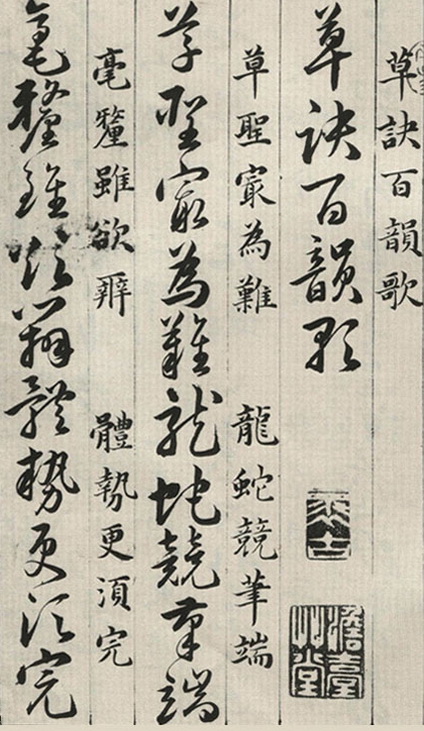 草訣百韻歌
草訣百韻歌
草聖㝡為難 龍蛇競筆端
草聖㝡為難龍蛇競筆端
毫釐雖欲辧 體勢更須完
毫釐雖欲辧體勢更須完